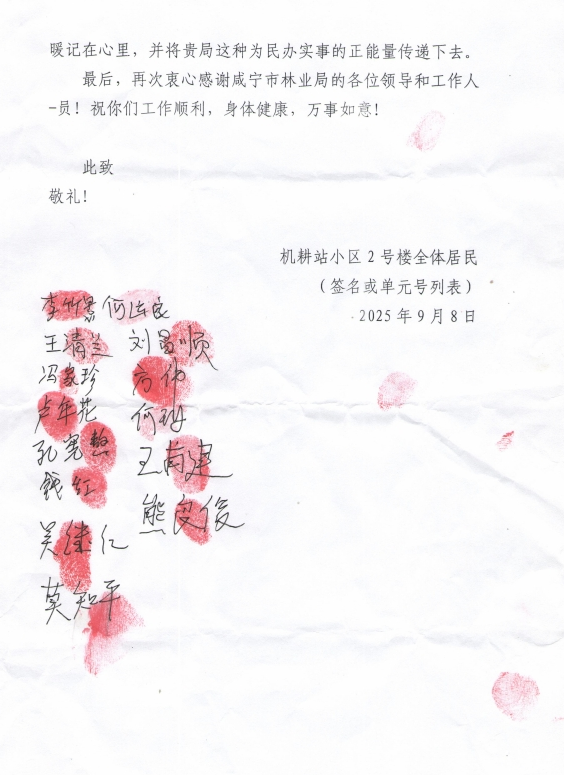 暖记在心里，并将贵局这种为民办实事的正能量传递下去。
最后，再次衷心感谢咸宁市林业局的各位领导和工作人
-员！祝你们工作顺利，身体健康，万事如意！
此致
敬礼！
机耕站小区 2 号楼全体居民
（签名或单元号列表）
2025 年 9 月 8 日
李竹景 何连良
王清兰 刘昌顺
冯家珍 方帅
卢年花 何琳
孔宪
钱红 王尚建
熊文俊
吴佳仁
莫知平